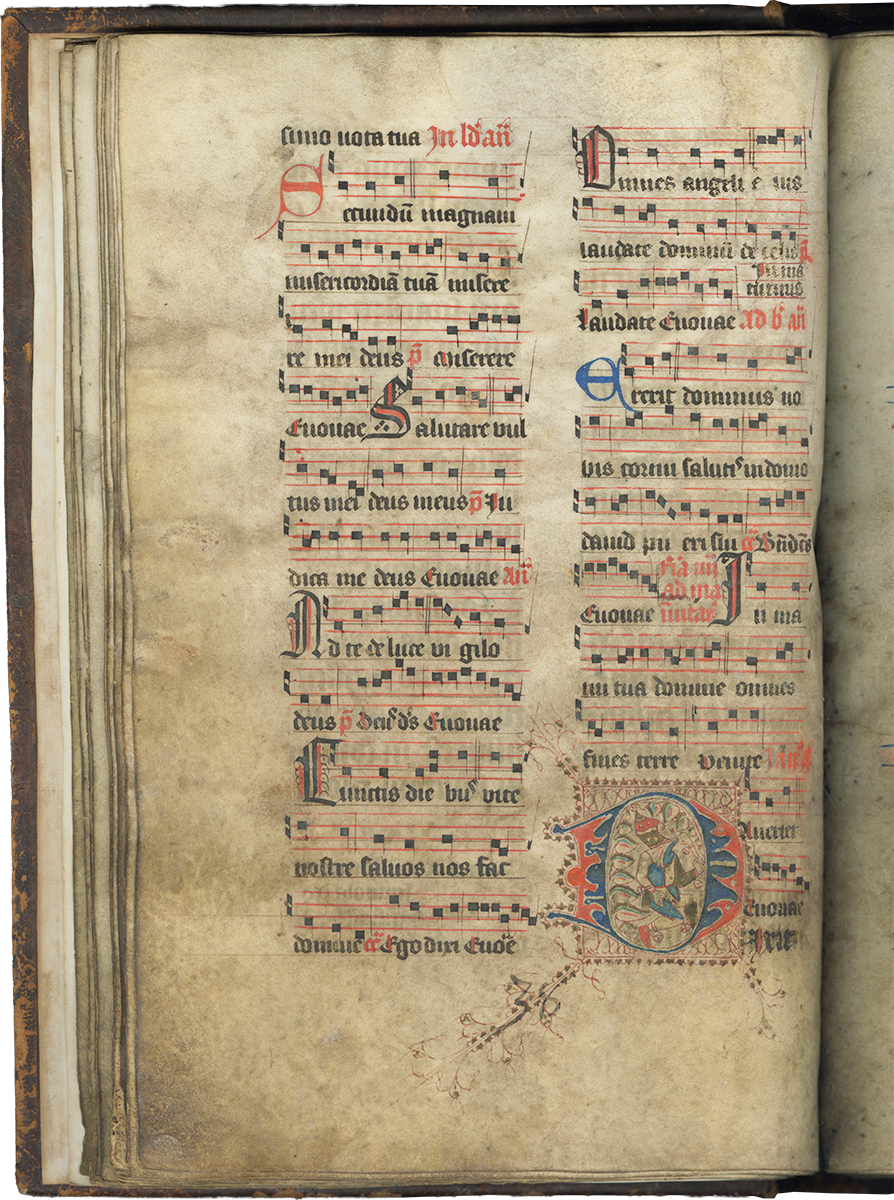 simo uota tua In ld' an̄
Secundū magnam
misericordiā tuā misere
re mei deus p̄ Miserere
Euouae Salutare vul
tus mei deus meus p̄ Iu
dica me deus Euouae An̄
Ad te de luce vigilo
deus p̄ Deus d's Euouae
Cunctis diebus vite
nostre saluos nos fac
domine cc̄ Ego dixi Euoūe
Omnes angeli eius
laudate dominū de celis
In ma
tutinis
laudate Euouae Ad b' an̄
Erexit dominus no
bis cornu saluti' in domo
dauid pueri sui cc̄ B̄ndc̄s
Fr̄a iiij
ad ma
Euouae In ma
nu tua domine omnes
fines terre Venite
Auertet
Euouae
Dixit
36